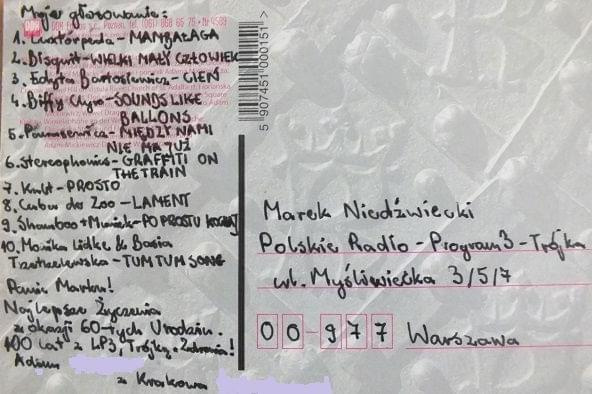 Moje głosowanie:
1. Luxtorpeda - MAMBAŁAGA
2. Bisquit - WIELKI MAŁY CZŁOWIEK
3. Edyta Bartosiewicz - CIEŃ
4. Biffy Clyro - SOUNDS LIKE
BALLONS
MIĘDZY NAMI
NIE MA JUŻ
6. Stereophonics - GRAFFITI ON
THE TRAIN
7. Kult - PROSTO
8. Carlos do Zoo - LAMENT
9. Shamboo + - PO PROSTU KOCHAJ
10. Monika Lidke & Basia
Trzetrzelewska - TUM TUM SONG
Panie Marku!
Najlepsze Życzenia
z okazji 60-tych Urodzin.
100 lat z LP3, Trójką, Zdrowia!
Adam
z Krakowa
5 907451 000151 >
Marek Niedźwiecki
Polskie Radio - Program 3 - Trójka
ul. Myśliwiecka 3/5/7
00-977 Warszawa